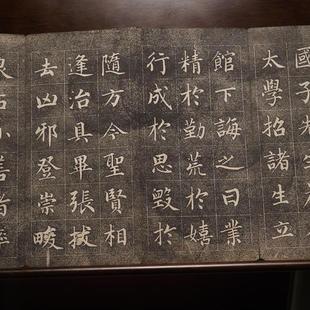 國子先生
太學招諸生立
館下誨之曰業
精於勤荒於嬉
行成於思毀於
隨方今聖賢相
逢治具畢張拔
去凶邪登崇畯
良占小善者率